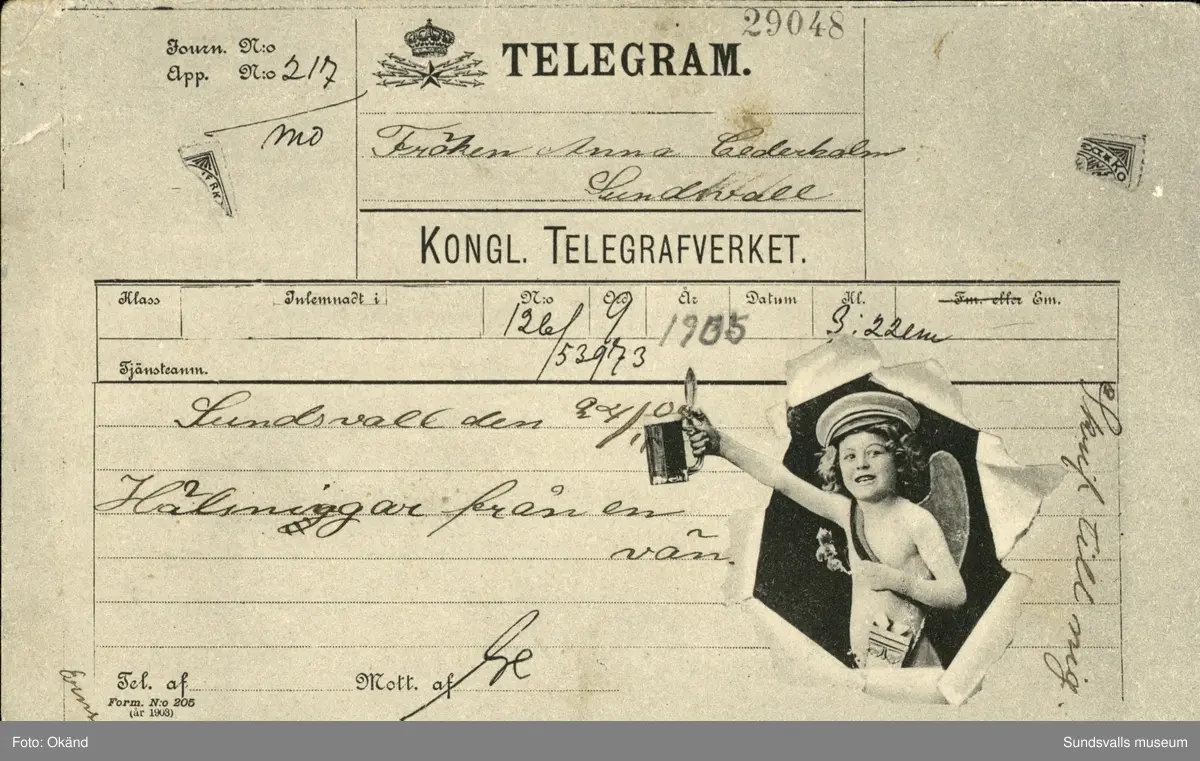 29048
Journ. N:o
App. N:o 217
mo
TELEGRAM.
Fröken Anna Cederholm
Sundsvall
KONGL. TELEGRAFVERKET.
Klass Inlemnadt i N:o Ord År Datum Kl. Fm. eller Em.
126/ 9 1905 3:22 em
/53973
Tjänsteanm.
Sundsvall den 24/
Hälsningar från en
vän.
Skrif till mig.
Tel. af Mott. af
Form. N:o 205
(år 1903)
Foto: Okänd
Sundsvalls museum